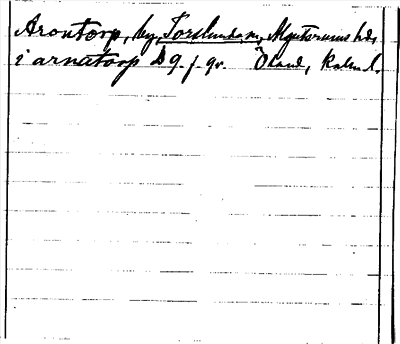 Arontorp, by, Torslunda sn, Algutsrums hd,
i arnatorp D 9. j. gv. Öland, Kalm. l.